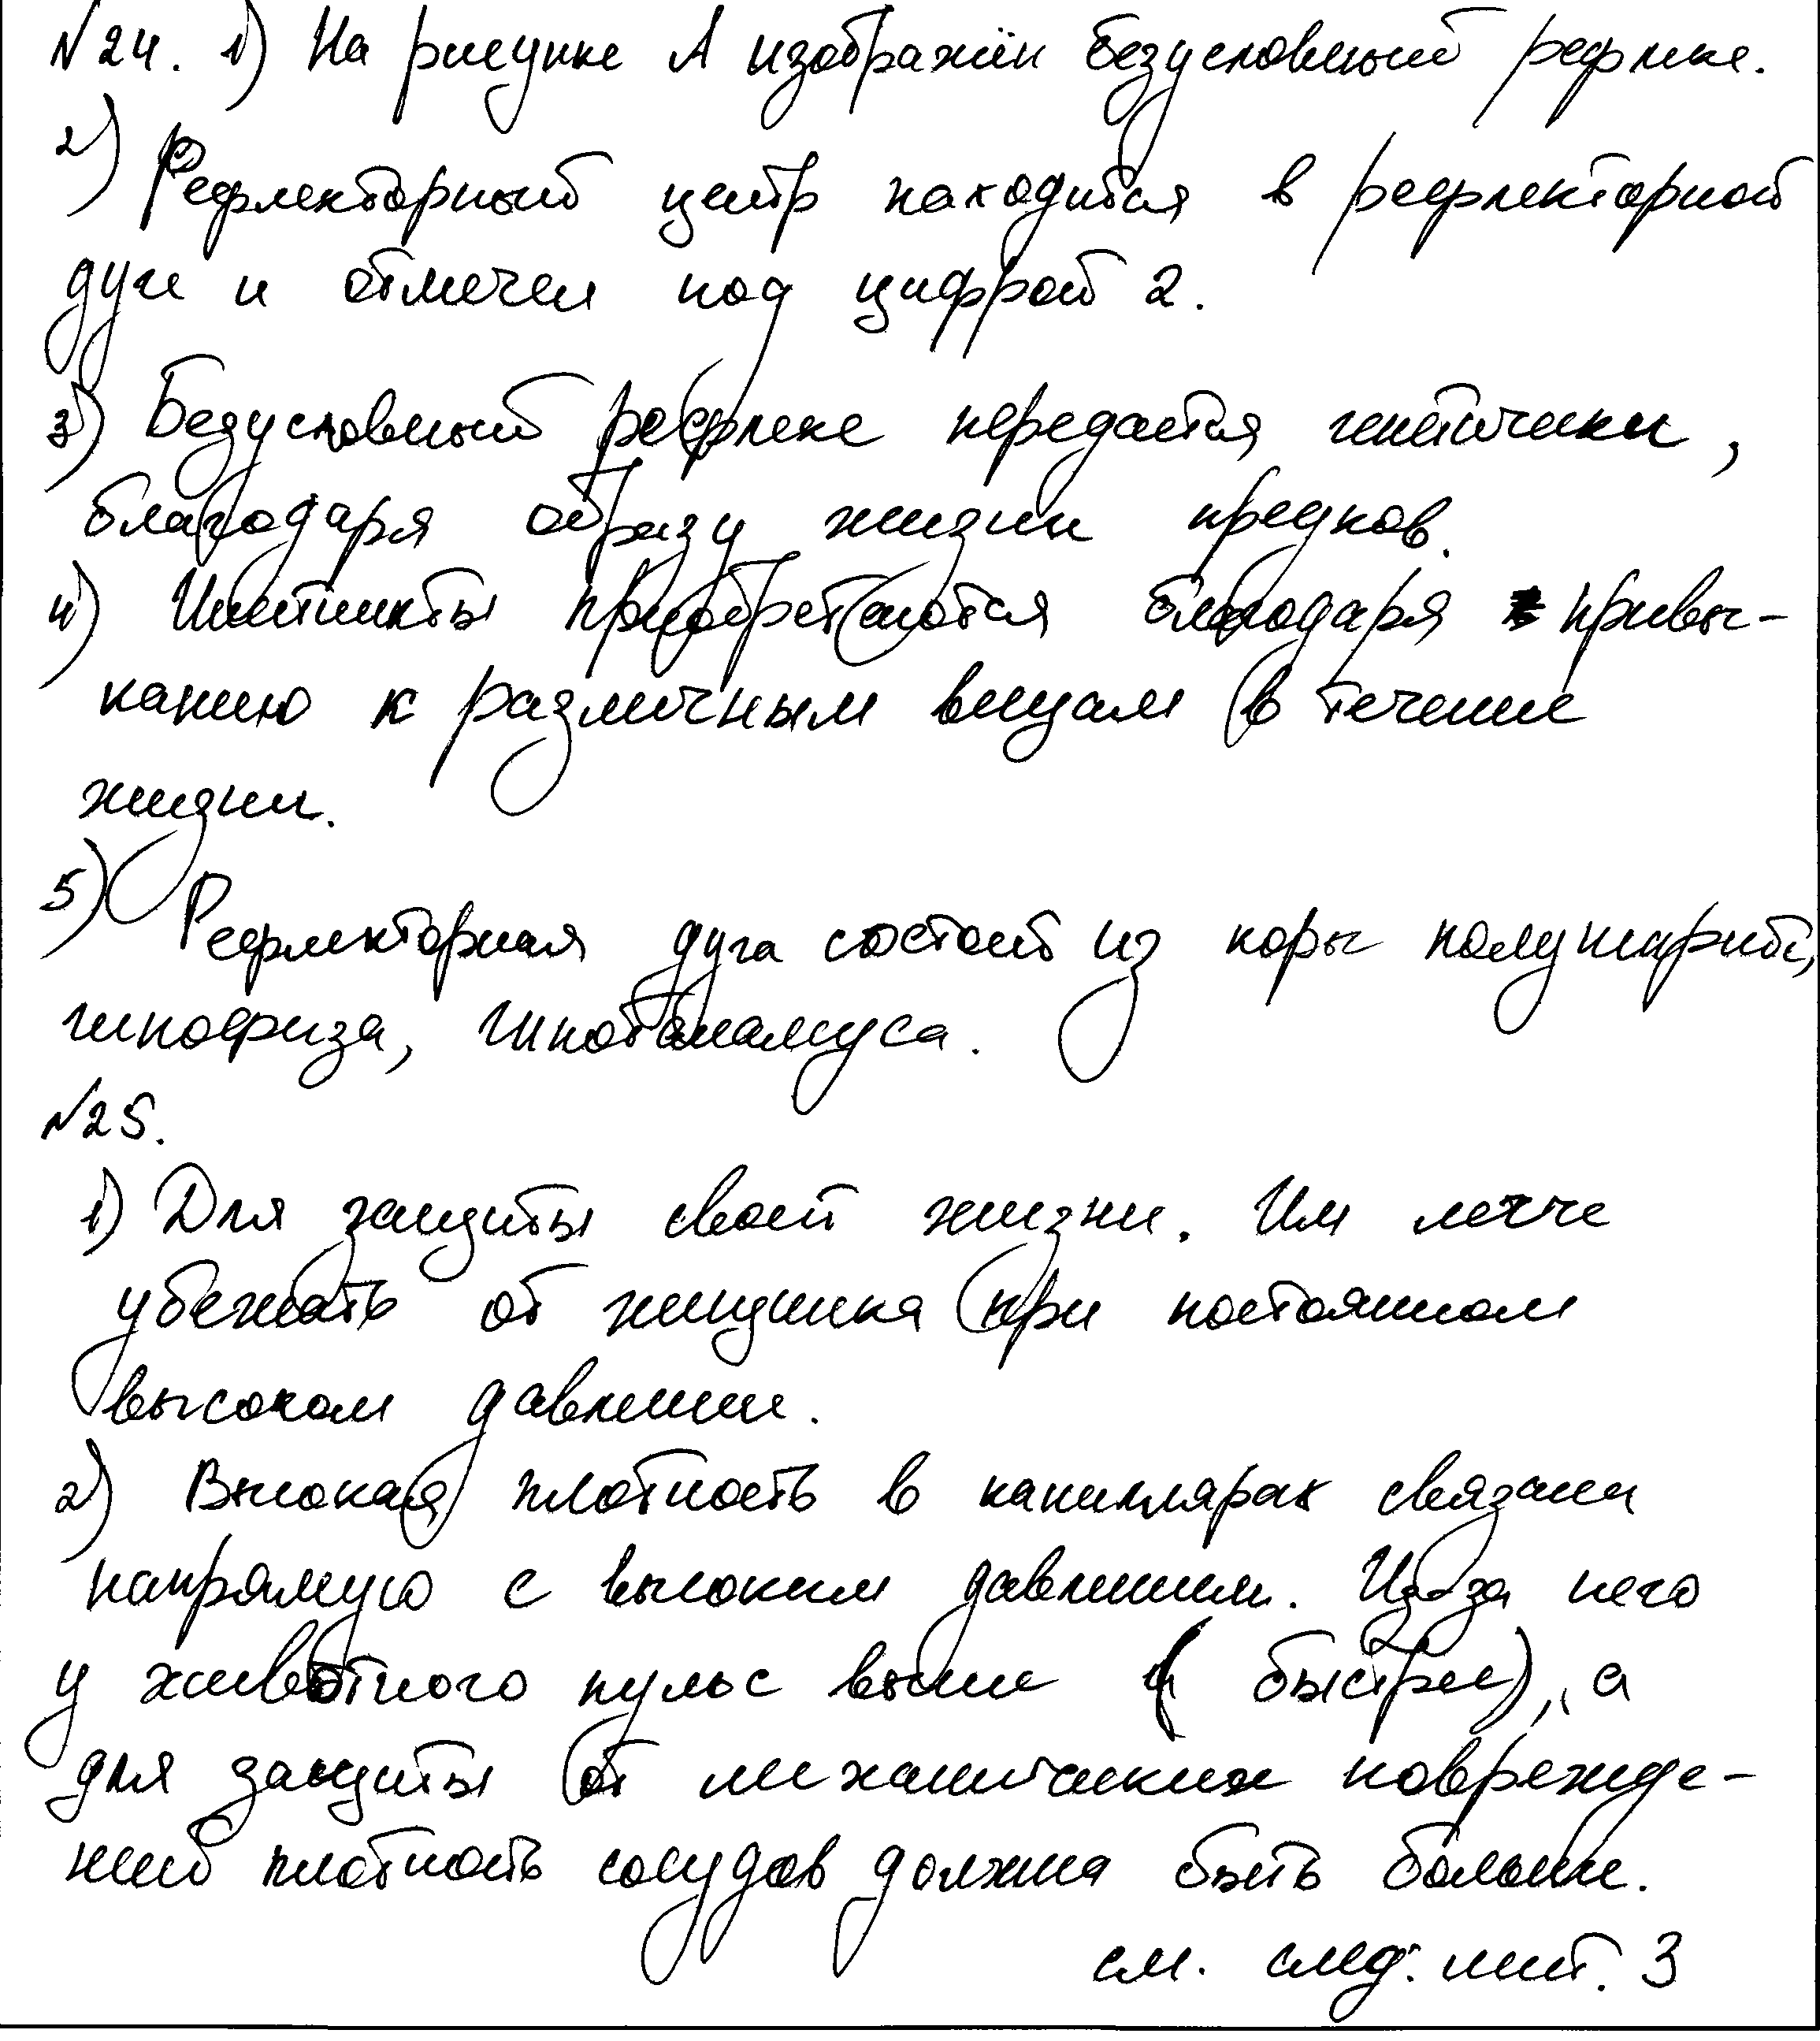 №24. 1) На рисунке А изображён безусловный рефлекс.
2) Рефлекторный центр находится в рефлекторной
дуге и отмечен под цифрой 2.
3) Безусловный рефлекс передается генетически,
благодаря образу жизни предков.
4) Инстинкты приобретаются благодаря привы-
канию к различным вещам в течение
жизни.
5) Рефлекторная дуга состоит из коры полушарий,
гипофиза, гипоталамуса.
№25.
1) Для защиты своей жизни. Им легче
убежать от хищника при постоянном
высоком давлении.
2) Высокая плотность в капиллярах связана
напрямую с высоким давлением. Из-за него
у животного пульс выше (быстрее), а
для защиты от механических поврежде-
ний плотность сосудов должна быть больше.
см. след. лист. 3